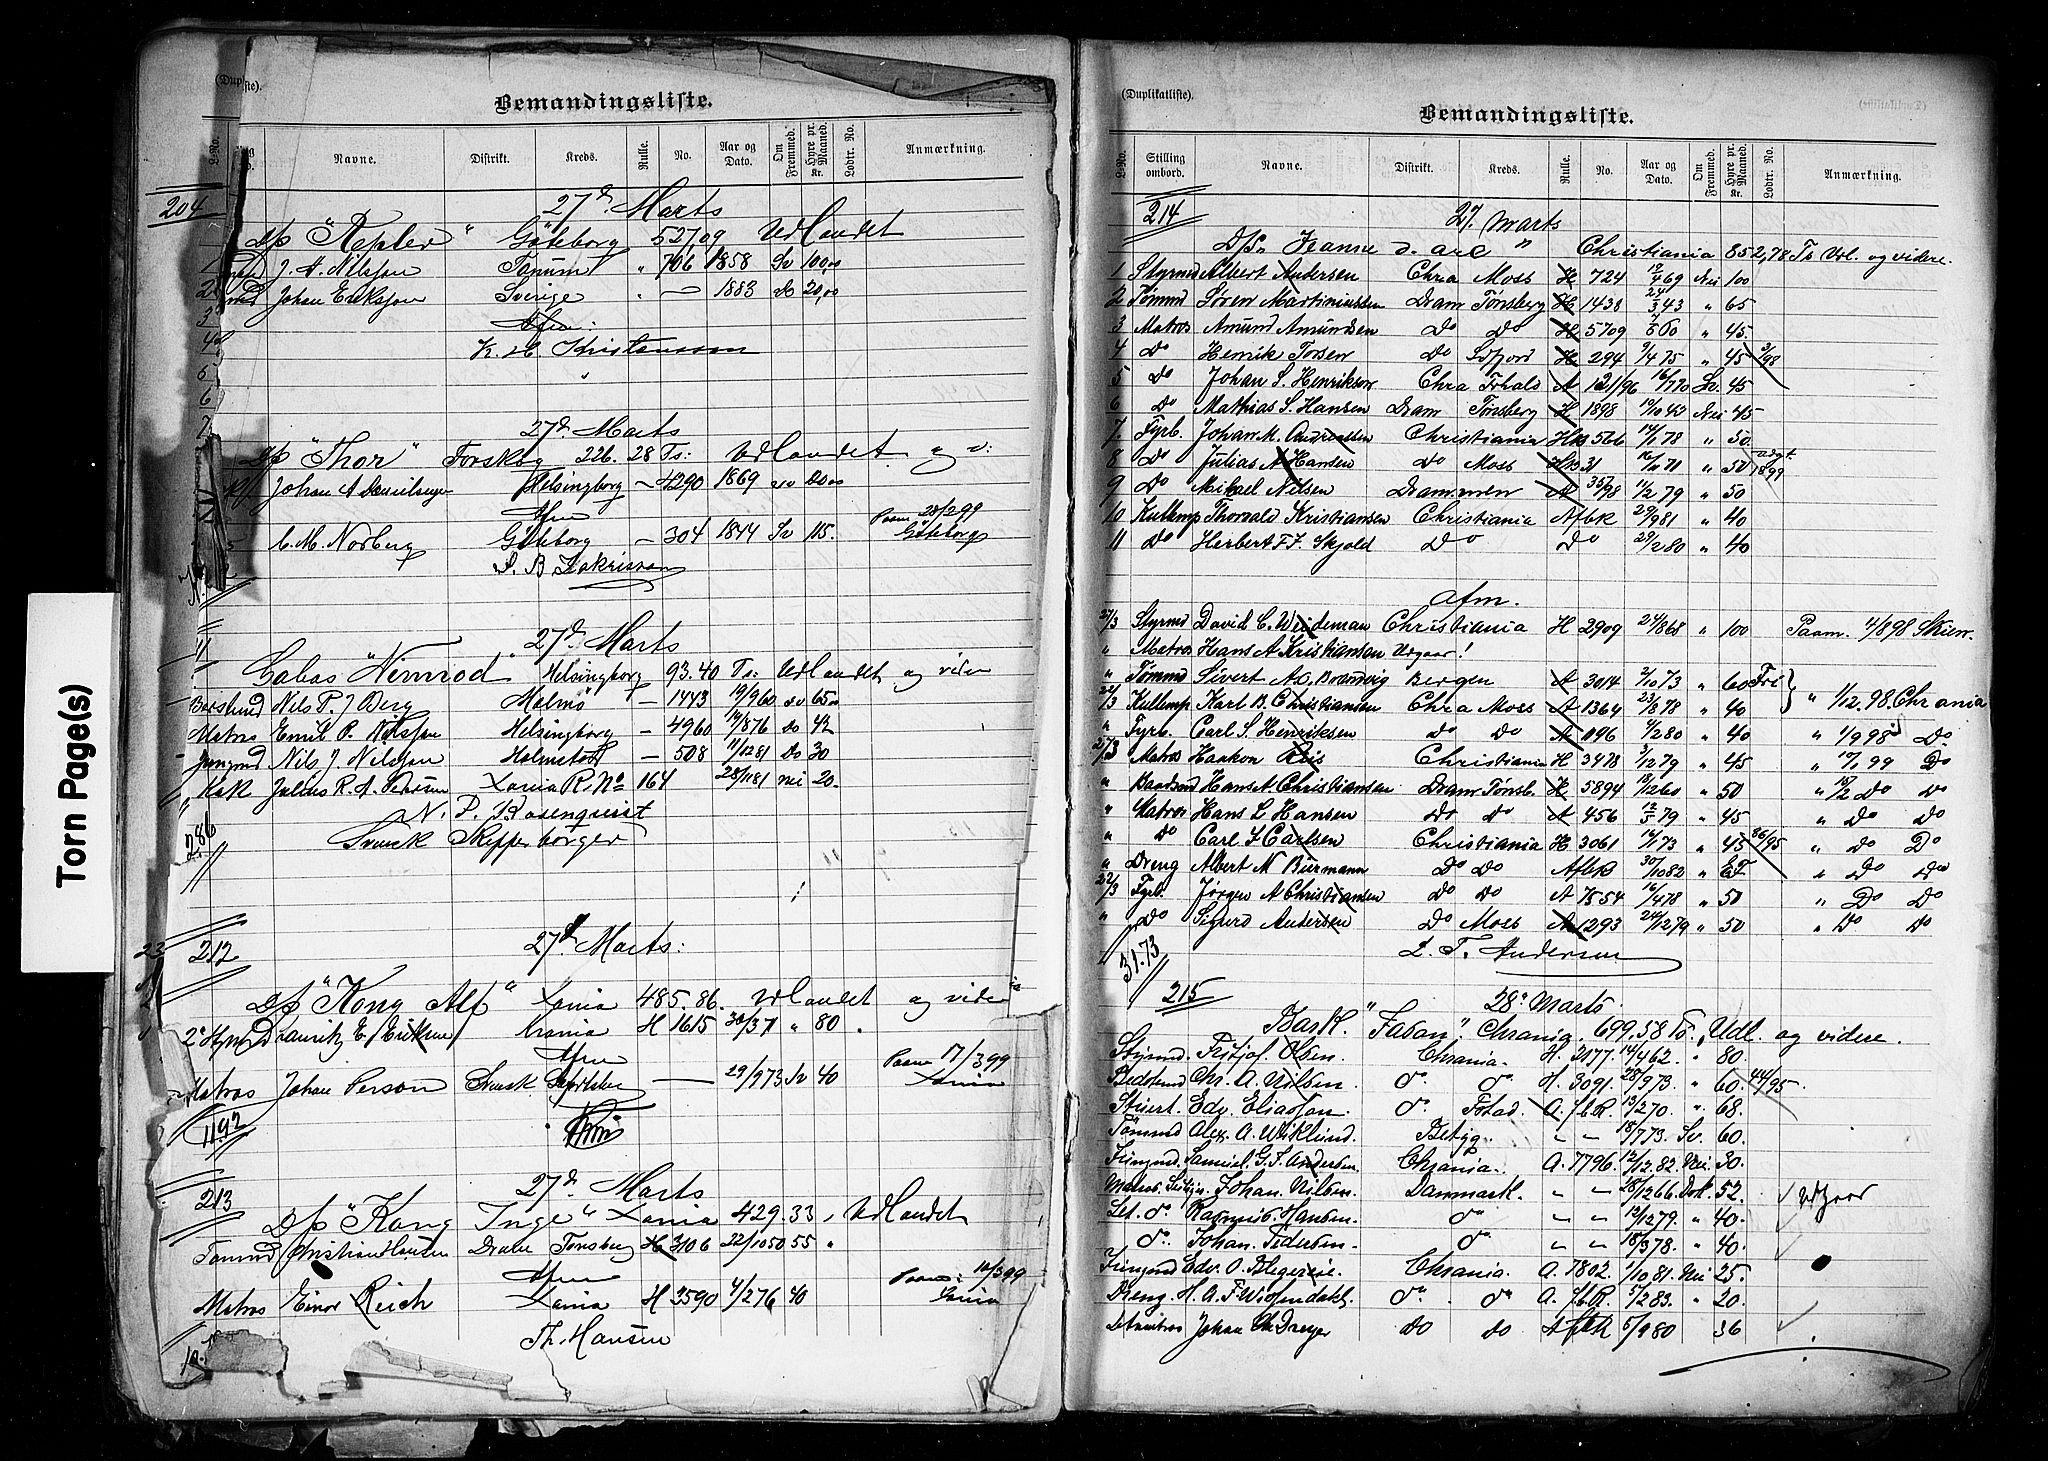 Torn Page(s)
(Dup ste).
Bemandingsliste.
L-No. Navne. Distrikt. Kreds. Rulle. No. Aar og Dato. Om Fremmed. Hyre pr. Maaned. Kr. Lodtr. No. Anmærkning.
204
27d. Marts
D/s "Kepler" Göteborg 527,09 Udlandet
1 J. A. Nilsson Tanum " 706 1858 Sv 100,00
2 Johan Eriksson Sverige " — 1883 Do 20,00
3 Afm:
4 K. M. Kristensson
5
6
7 27d. Marts
D/s "Thor" Torskog 226.28 Ts: Udlandet og v:
Johan A Danielsen Helsingborg — 4290 1869
Afm
C. M. Norberg Göteborg — 304 1844 Sv 115. Paam 28/2 99 Göteborg
S. B. Zakrisson
27d. Marts
Galeas "Nimrod" Helsingborg 93.40 Ts. Udlandet og videre
Bestmd Nils P. J Berg Malmö — 1443 19/9 60 Sv 65
Matros Emil P. Nilsson Helsingborg — 4960 14/8 76 Do 42
Jungmd Nils J. Nilsson Halmstad — 508 11/12 81 Do 30
Kok Julius R. A. Petersen Xania R. No 164 28/11 81 Nei 20.
N. P. Rosenquist
286 Svensk Skepperborger
212 27d Marts:
D/s "Kong Alf" Xania 485.86. Udlandet og videre
2d Styrmd Xrania H 1615 30/3 71 " 80
Afm
Matros Johan Person Svensk — 29/9 73 Sv 40 Paam 17/3 99 Xania
1192
213 27d. Marts
D/s "Kong Inge" Xania 429.33, Udlandet
Tømmd Christian Hansen Dram Tønsberg H 3106 22/10 50 55 "
Afm
Matros Einar Reich Xania H 3590 4/2 76 40 Paam: 10/3 99 Xania
Th. Hansen
(Duplikatliste).
Bemandingsliste.
L-No. Stilling ombord. Navne. Distrikt. Kreds. Rulle. No. Aar og Dato. Om Fremmed. Hyre pr. Maaned. Kr. Lodtr. No. Anmærkning.
214 27. Marts
D/s "Jeanne d'arc" Christiania 852,78 Ts Udl. og videre.
1 Styrmd Albert Andersen Chra Moss H 724 12/4 69 Nei 100
2 Tømmd Søren Martiniussen Dram Tønsberg H 1438 24/3 43 " 65
3 Matros Amund Amundsen Do Do H 5709 7/5 60 " 45.
4 Do Henrik Torsen Do Sofjord H 294 9/4 75 " 45 3/98
5 Do Johan S. Henrikson Chra Frhald A 121/96 16/7 70 Sv. 45
6 Do Mathias S. Hansen Dram Tønsberg H 1898 19/10 43 Nei 45
7. Fyrb. Johan M. Andreassen Christiania HB 566 14/1 78 " 50
8 Do Julius A Hansen Do Moss HB 31 16/11 71 " 50 1899
9 Do Mikael Nilsen Drammen A 35/98 11/2 79 " 50
10 Kullemp Thorvald Kristiansen Christiania AfbR 29/9 81 " 40
11 Do Herbert F. F. Skjold Do Do 29/2 80 " 40
Afm.
27/3 Styrmd David C. Weideman Christiania H 2909 24/8 68 " 100 Paam. 11/8 98 Skien.
" Matros Hans A Kristiansen Udgaar!
" Tømmd Sivert Brandvig Bergen A 3014 2/10 73 " 60 Fri
24/3 Kullemp Karl B. Christiansen Chra Moss A 1364 23/8 78 " 40 " 1/12. 98. Chrania
" Fyrb. Carl S. Henriksen Do Do A 1196 4/2 80 " 40 " 1/9 98 Do
27/3 Matros Haakon Riis Christiania H 3478 3/12 79 " 45 " 17/1 99 Do
" Baadsmd Hans A. Christiansen Dram Tønsb. H 5894 18/12 60 " 50 " 15/2 Do Do
" Matros Hans L Hansen Do Do A 456 12/5 79 " 45 " Do Do
" Do Carl S. Carlsen Christiania H 3061 16/1 73 " 45 86/95 " Do Do
" Dreng Albert N Biermann Do Do AfbR 30/10 82 " EF " Do Do
22/3 Fyrb. Jørgen A Christiansen Do Do A 7554 16/4 78 " 50 " Do Do
" Do Sigurd Andersen Do Moss A 1293 24/12 79 " 50 " Do Do
31.73 L. T. Andersen
215 28d Marts
Bark. "Faban", Chrania. 699.58 Ts, Udl. og videre.
Styrmd. Fritjof Olsen. Chrania. H. 3177. 14/4 62. " 80.
Bedstmd Chr. A. Nilsen. do do H. 3091. 28/9 73. " 60. 44/95.
Stuert. Edv. Eliassen. do Fstad. A. fb.R. 13/2 70. " 68.
Tømmd Alex. A. Wiklund. Betyg. " " 18/7 73. Sv. 60.
Jungmd. Samuel. G. F. Andersen. Chrania. A. 7796. 12/12. 82. Nei 30.
Matros. Johan. Nilsen. Danmark. " " 28/12 66. Dsk. 52. Udgaar
Let. do Rasmus. Hansen. do " " 12/12 79. " 40.
do Johan. Pedersen. do " " 18/3 78. " 40.
Jungmd Edv. O. Blegerøe. Chrania. A. 7802. 1/10. 81. Nei 25.
Dreng. H. A. F. Wigendahl. do do A. fb.R. 5/2 83. " 20.
Letmatros Johan Chr Dreyer do do AfbR 5/9 80 36